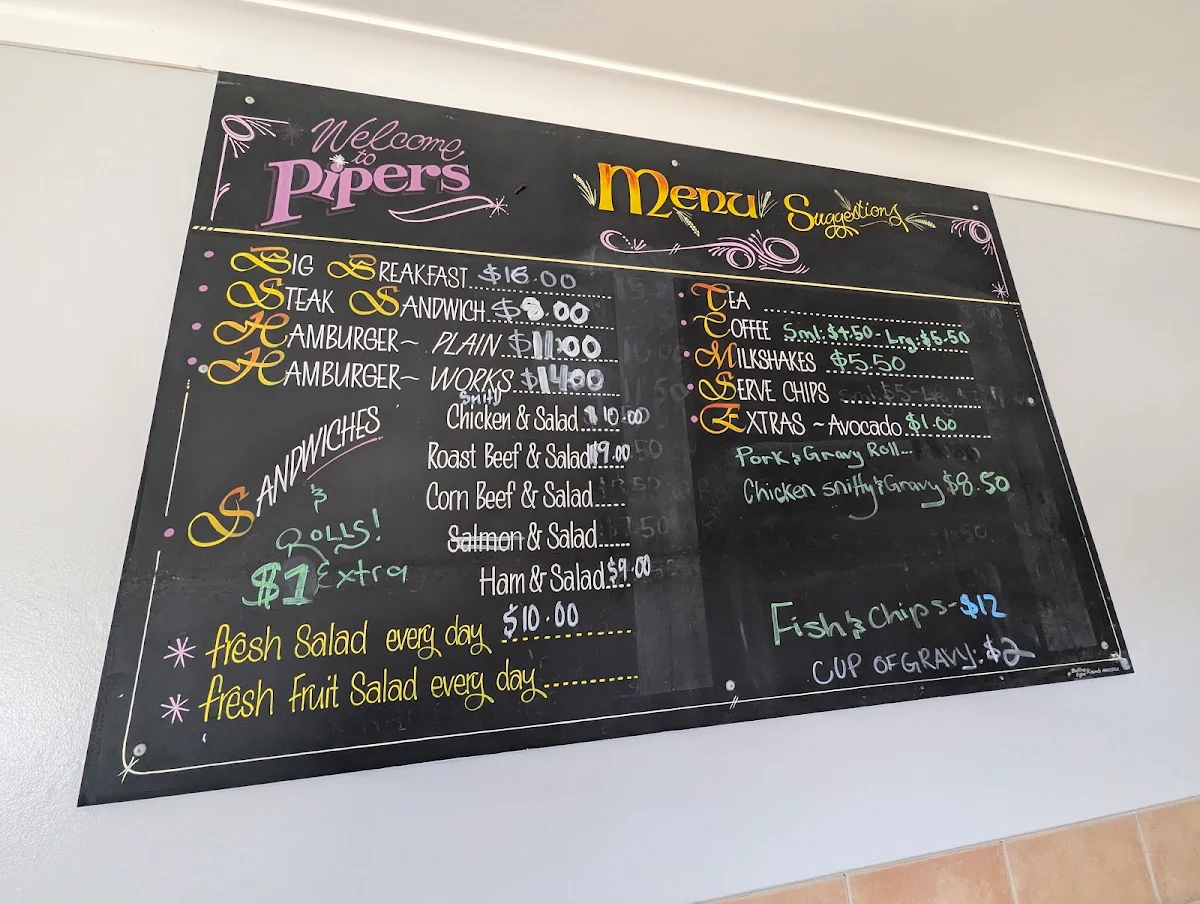 Welcome
to
Pipers
Menu Suggestions
Big Breakfast $16.00
Steak Sandwich $8.00
Hamburger~ Plain $11.00
Hamburger~ Works $14.00
Snitty
Chicken & Salad $10.00
Roast Beef & Salad $9.00
Corn Beef & Salad......
Salmon & Salad......
Ham & Salad $9.00
Sandwiches
&
Rolls!
$1 Extra
fresh Salad every day $10.00
fresh Fruit Salad every day
Tea
Coffee Sml: $4.50 - Lrg: $5.50
Milkshakes $5.50
Serve Chips
Extras ~ Avocado $1.00
Pork & Gravy Roll...
Chicken snitty & Gravy $8.50
Fish & Chips - $12
CUP OF GRAVY: $2